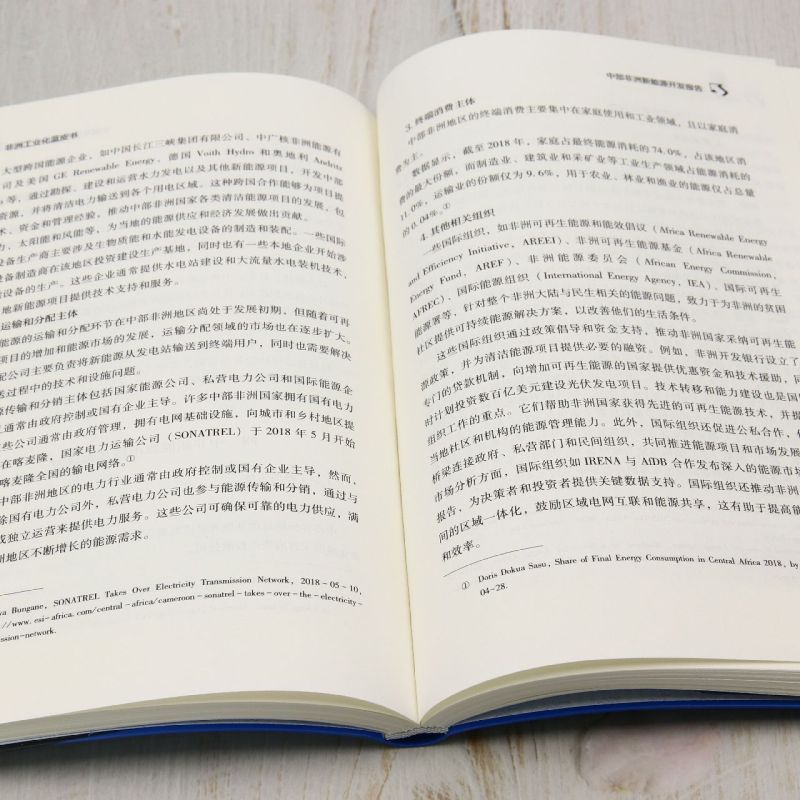 非洲工业化蓝皮书
大型跨国能源企业，如中国长江三峡集团有限公司、中广核非洲能源有
司及美国 GE Renewable Energy、德国 Voith Hydro 和奥地利 Andritz
等，通过勘探、建设和运营水力发电以及其他新能源项目，开发中部
资源，并将清洁电力输送到各个用电区域。这种跨国合作能够为项目提
术、资金和管理经验，推动中部非洲国家各类清洁能源项目的发展，包
力、太阳能和风能等，为当地的能源供应和经济发展做出贡献。一些国际
设备生产商主要涉及生物质能和水能发电设备的制造和装配。一些国际
设备制造商在该地区投资建设生产基地，同时也有一些本地企业开始涉
设备的生产。这些企业通常提供水电站建设和大流量水电装机技术，
地新能源项目提供技术支持和服务。
运输和分配主体
能源的运输和分配环节在中部非洲地区尚处于发展初期，但随着可再
项目的增加和能源市场的发展，运输分配领域的市场也在逐步扩大。
配公司主要负责将新能源从发电站输送到终端用户，同时也需要解决
送过程中的技术和设施问题。
源传输和分销主体包括国家能源公司、私营电力公司和国际能源企
通常由政府控制或国有企业主导。许多中部非洲国家拥有国有电力
些公司通常由政府管理，拥有电网基础设施，向城市和乡村地区提
在喀麦隆，国家电力运输公司（SONATREL）于 2018 年 5 月开始
喀麦隆全国的输电网络。①
中部非洲地区的电力行业通常由政府控制或国有企业主导，然而，
除国有电力公司外，私营电力公司也参与能源传输和分销，通过与
或独立运营来提供电力服务。这些公司可确保可靠的电力供应，满
洲地区不断增长的能源需求。
Bungane, SONATREL Takes Over Electricity Transmission Network, 2018-05-10,
www. esi-africa. com/central-africa/cameroon-sonatrel-takes-over-the-electricity-
ssion-network.
中部非洲新能源开发报告
3. 终端消费主体
中部非洲地区的终端消费主要集中在家庭使用和工业领域，且以家庭消
费为主。
数据显示，截至 2018 年，家庭占最终能源消耗的 74.0%，占该地区消
费的最大份额，而制造业、建筑业和采矿业等工业生产领域占能源消耗的
11.0%，运输业的份额仅为 9.6%，用于农业、林业和渔业的能源仅占总量
的 0.04%。①
4. 其他相关组织
一些国际组织，如非洲可再生能源和能效倡议（Africa Renewable Energy
and Efficiency Initiative，AREEI）、非洲可再生能源基金（Africa Renewable
Energy Fund，AREF）、非洲能源委员会（African Energy Commission,
AFREC）、国际能源组织（International Energy Agency，IEA）、国际可再生
能源署等，针对整个非洲大陆与民生相关的能源问题，致力于为非洲的贫困
社区提供可持续能源解决方案，以改善他们的生活条件。
这些国际组织通过政策倡导和资金支持，推动非洲国家采纳可再生能
源政策，并为清洁能源项目提供必要的融资。例如，非洲开发银行设立了
专门的贷款机制，向增加可再生能源的国家提供优惠资金和技术援助，同
时计划投资数百亿美元建设光伏发电项目。技术转移和能力建设也是国
组织工作的重点。它们帮助非洲国家获得先进的可再生能源技术，并提
当地社区和机构的能源管理能力。此外，国际组织还促进公私合作，作
桥梁连接政府、私营部门和民间组织，共同推进能源项目和市场发展
市场分析方面，国际组织如 IRENA 与 AfDB 合作发布深入的能源市场
报告，为决策者和投资者提供关键数据支持。国际组织还推动非洲
间的区域一体化，鼓励区域电网互联和能源共享，这有助于提高能
和效率。
① Doris Dokua Sasu, Share of Final Energy Consumption in Central Africa 2018, by
04-28.